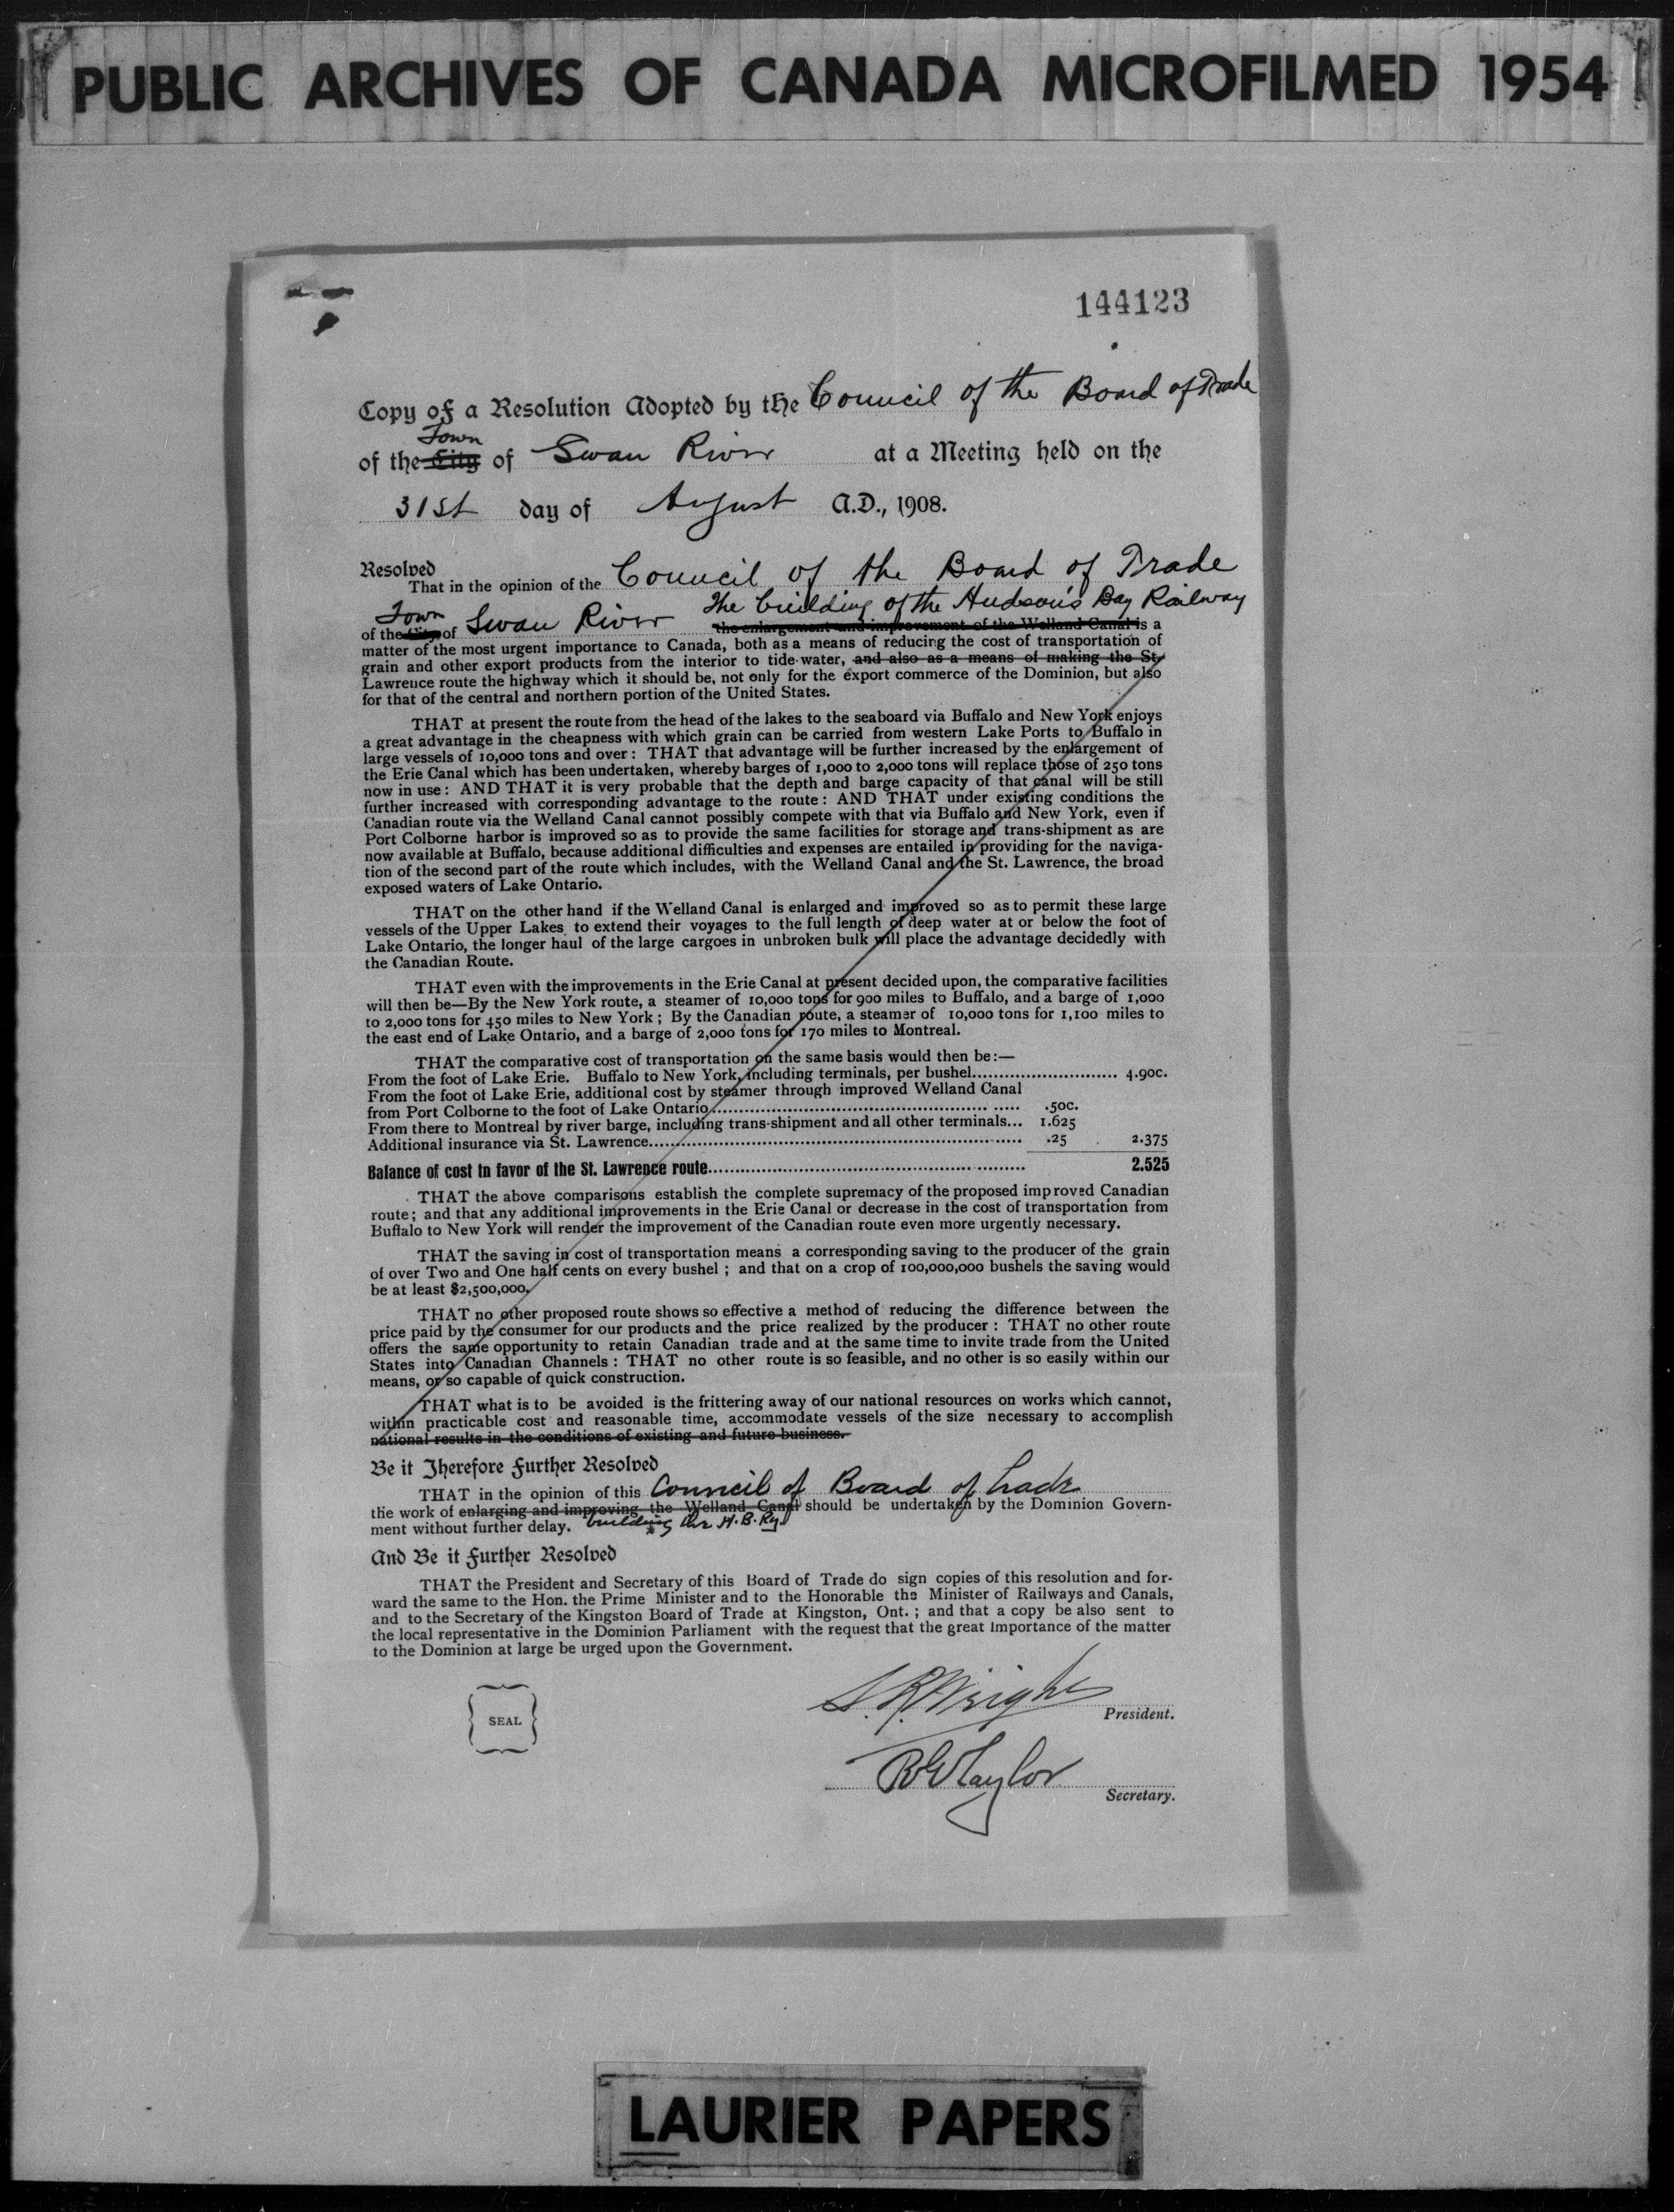 PUBLIC ARCHIVES OF CANADA MICROFILMED 1954
144123
Copy of a Resolution Adopted by the Council of the Board of Trade
Town
of the City of Swan River at a Meeting held on the
31st day of August A.D., 1908.
Resolved
That in the opinion of the Council of the Board of Trade
Town The building of the Hudson's Bay Railway
of the City of Swan River the enlargement and improvement of the Welland Canal is a
matter of the most urgent importance to Canada, both as a means of reducing the cost of transportation of
grain and other export products from the interior to tide-water, and also as a means of making the St.
Lawrence route the highway which it should be, not only for the export commerce of the Dominion, but also
for that of the central and northern portion of the United States.
THAT at present the route from the head of the lakes to the seaboard via Buffalo and New York enjoys
a great advantage in the cheapness with which grain can be carried from western Lake Ports to Buffalo in
large vessels of 10,000 tons and over : THAT that advantage will be further increased by the enlargement of
the Erie Canal which has been undertaken, whereby barges of 1,000 to 2,000 tons will replace those of 250 tons
now in use : AND THAT it is very probable that the depth and barge capacity of that canal will be still
further increased with corresponding advantage to the route : AND THAT under existing conditions the
Canadian route via the Welland Canal cannot possibly compete with that via Buffalo and New York, even if
Port Colborne harbor is improved so as to provide the same facilities for storage and trans-shipment as are
now available at Buffalo, because additional difficulties and expenses are entailed in providing for the naviga-
tion of the second part of the route which includes, with the Welland Canal and the St. Lawrence, the broad
exposed waters of Lake Ontario.
THAT on the other hand if the Welland Canal is enlarged and improved so as to permit these large
vessels of the Upper Lakes to extend their voyages to the full length of deep water at or below the foot of
Lake Ontario, the longer haul of the large cargoes in unbroken bulk will place the advantage decidedly with
the Canadian Route.
THAT even with the improvements in the Erie Canal at present decided upon, the comparative facilities
will then be—By the New York route, a steamer of 10,000 tons for 900 miles to Buffalo, and a barge of 1,000
to 2,000 tons for 450 miles to New York ; By the Canadian route, a steamer of 10,000 tons for 1,100 miles to
the east end of Lake Ontario, and a barge of 2,000 tons for 170 miles to Montreal.
THAT the comparative cost of transportation on the same basis would then be:—
From the foot of Lake Erie. Buffalo to New York, including terminals, per bushel........................... 4.90c.
From the foot of Lake Erie, additional cost by steamer through improved Welland Canal
from Port Colborne to the foot of Lake Ontario........................................................ .50c.
From there to Montreal by river barge, including trans-shipment and all other terminals... 1.625
Additional insurance via St. Lawrence.................................................................... .25 2.375
Balance of cost in favor of the St. Lawrence route........................................................... 2.525
THAT the above comparisons establish the complete supremacy of the proposed improved Canadian
route; and that any additional improvements in the Erie Canal or decrease in the cost of transportation from
Buffalo to New York will render the improvement of the Canadian route even more urgently necessary.
THAT the saving in cost of transportation means a corresponding saving to the producer of the grain
of over Two and One half cents on every bushel ; and that on a crop of 100,000,000 bushels the saving would
be at least $2,500,000.
THAT no other proposed route shows so effective a method of reducing the difference between the
price paid by the consumer for our products and the price realized by the producer : THAT no other route
offers the same opportunity to retain Canadian trade and at the same time to invite trade from the United
States into Canadian Channels : THAT no other route is so feasible, and no other is so easily within our
means, or so capable of quick construction.
THAT what is to be avoided is the frittering away of our national resources on works which cannot,
within practicable cost and reasonable time, accommodate vessels of the size necessary to accomplish
national results in the conditions of existing and future business.
Be it Therefore Further Resolved
THAT in the opinion of this Council of Board of Trade
the work of enlarging and improving the Welland Canal should be undertaken by the Dominion Govern-
ment without further delay. building the H.B. Ry.
And Be it Further Resolved
THAT the President and Secretary of this Board of Trade do sign copies of this resolution and for-
ward the same to the Hon. the Prime Minister and to the Honorable the Minister of Railways and Canals,
and to the Secretary of the Kingston Board of Trade at Kingston, Ont. ; and that a copy be also sent to
the local representative in the Dominion Parliament with the request that the great Importance of the matter
to the Dominion at large be urged upon the Government.
SEAL
S. R. Wright
President.
Taylor
Secretary.
LAURIER PAPERS